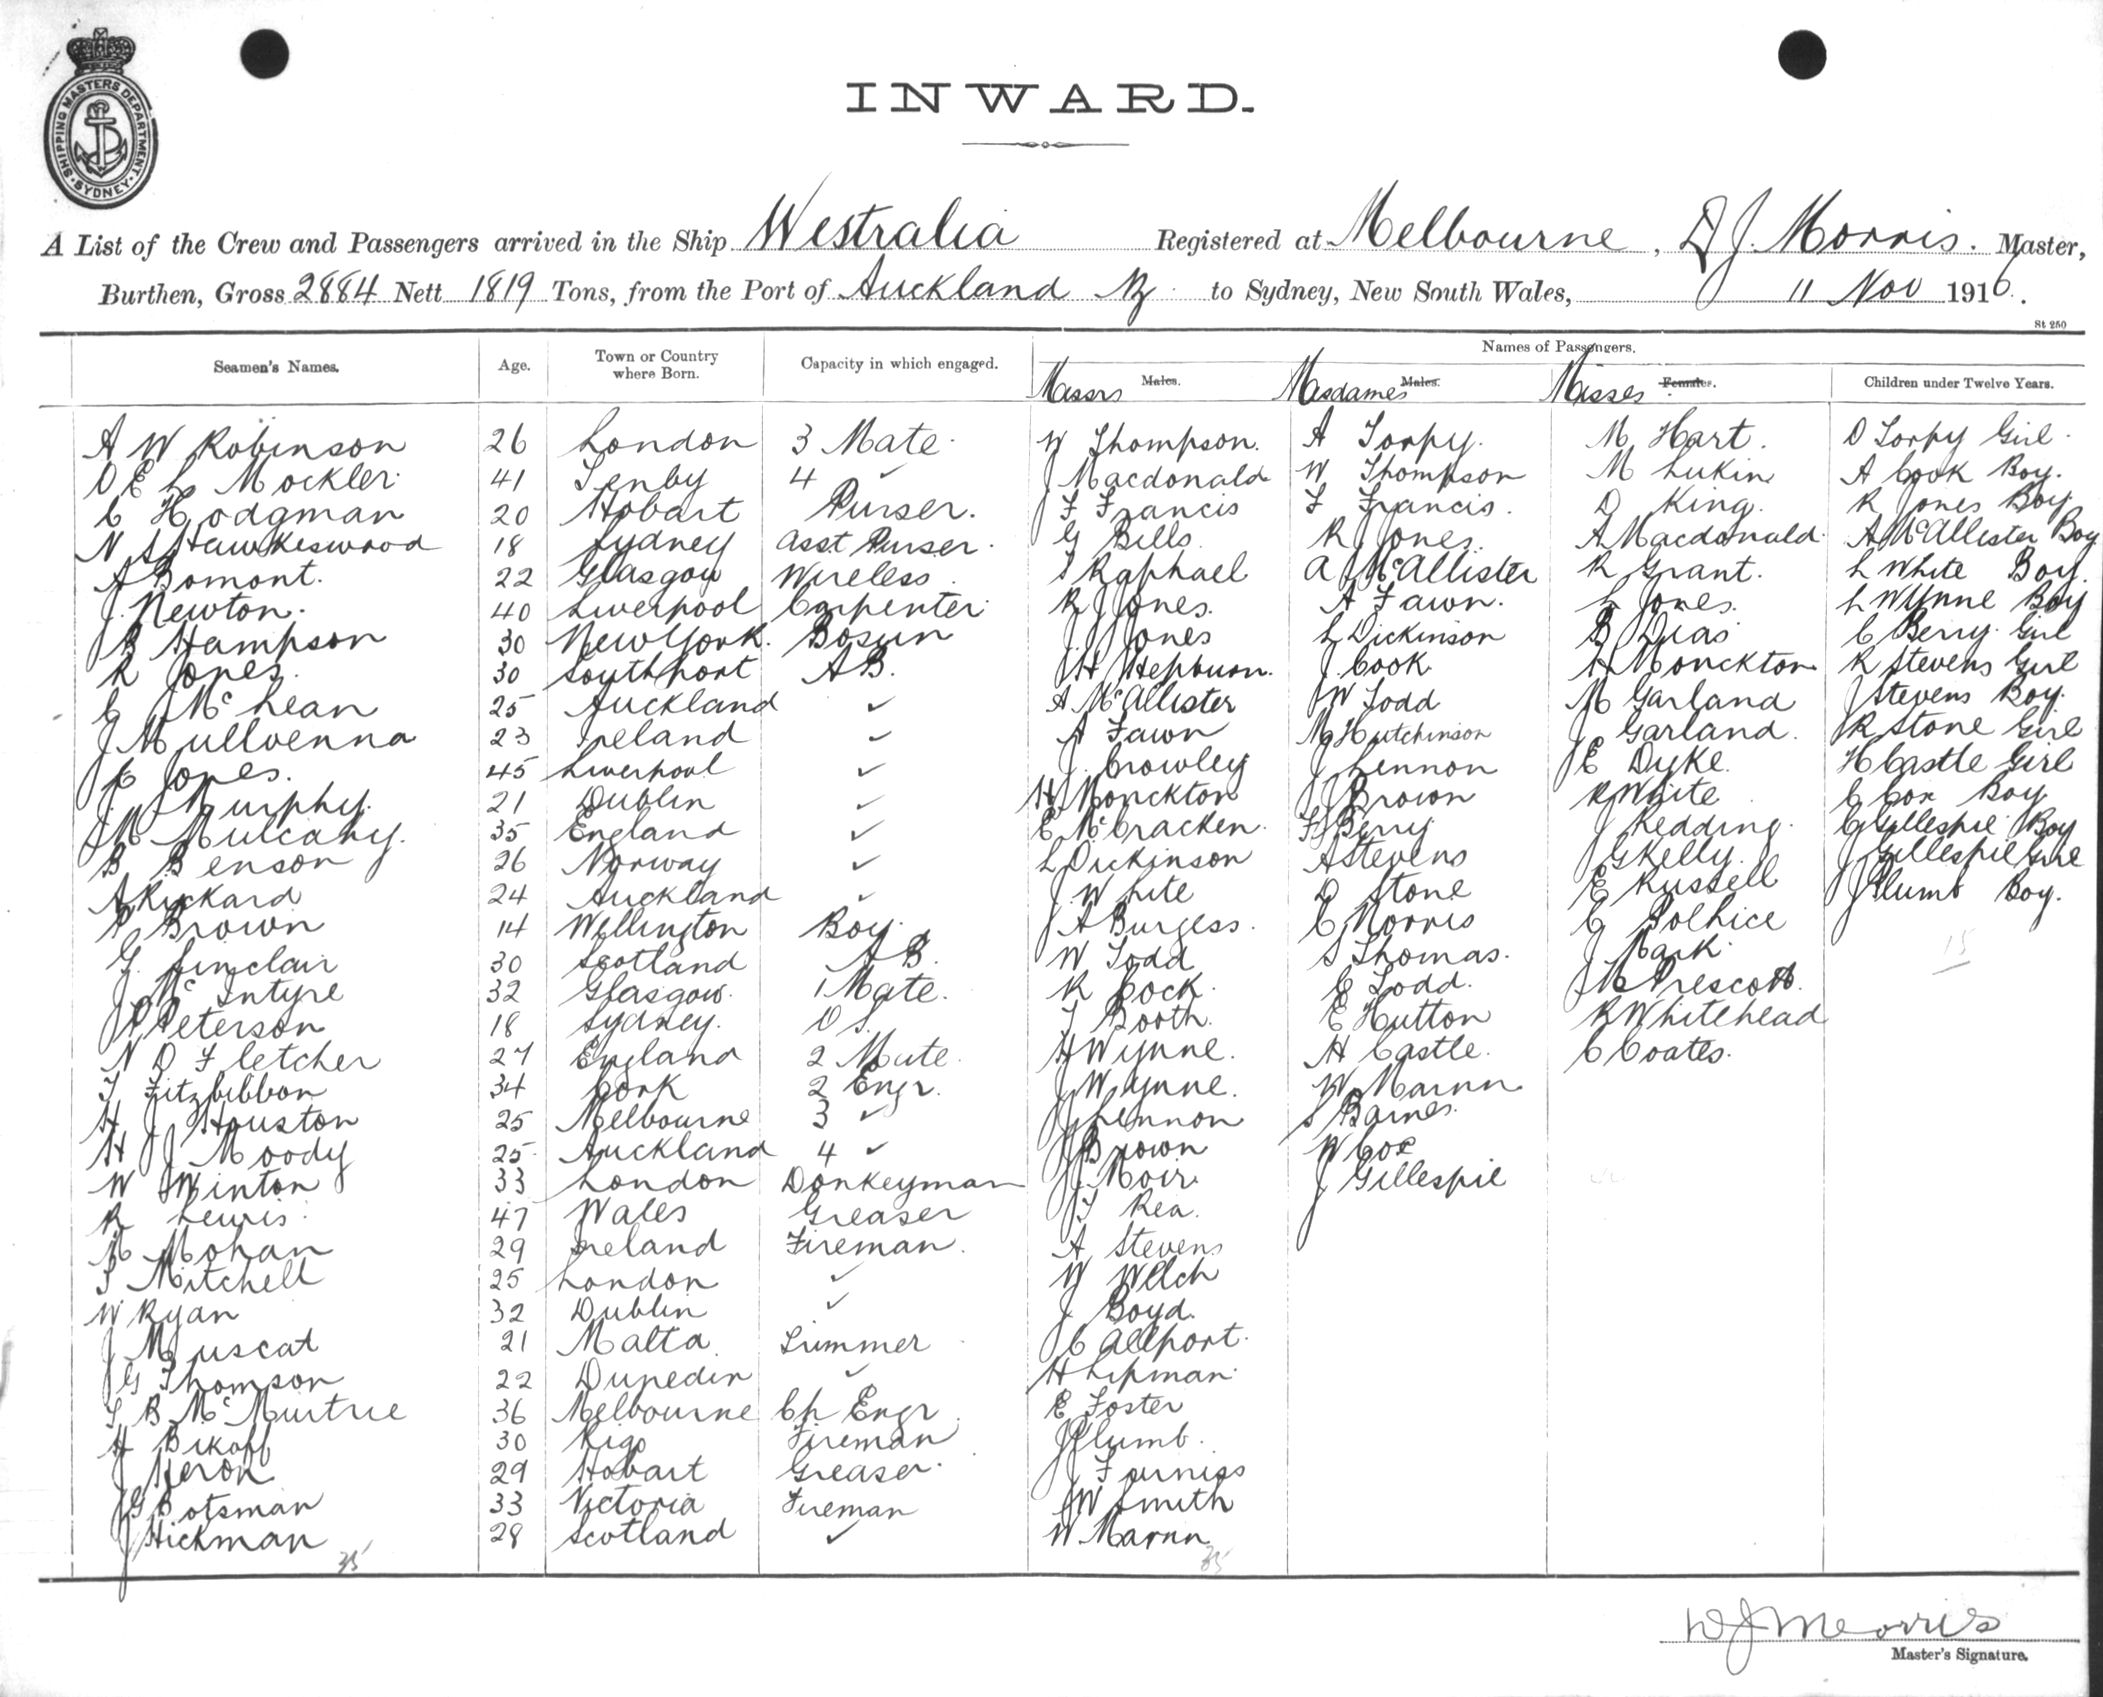 SHIPPING MASTERS DEPARTMENT · SYDNEY ·
INWARD.
A List of the Crew and Passengers arrived in the Ship Westralia Registered at Melbourne, D J. Morris. Master,
Burthen, Gross 2884 Nett 1819 Tons, from the Port of Auckland NZ to Sydney, New South Wales, 11 Nov 1916.
St 250
Seamen's Names. Age. Town or Country where Born. Capacity in which engaged. Names of Passengers.
Messrs Males. Mesdames Males. Misses Females. Children under Twelve Years.
A W Robinson 26 London 3 Mate. W Thompson. A Torpy. M Hart. D Torpy Girl.
D E L Mockler. 41 Tenby 4 ✓ J Macdonald W Thompson M Lukin A Cook Boy.
C Hodgman 20 Hobart Purser. F Francis F Francis. D King. R Jones Boy
N S Hawkeswood 18 Sydney Asst Purser. G Bills R Jones. A Macdonald. A McAllister Boy
A Bomont. 22 Glasgow Wireless. S Raphael A McAllister R Grant. L White Boy.
J. Newton. 40 Liverpool Carpenter. R J Jones. A Fawn. L Jones. L Wynne Boy
B Hampson 30 New York. Bosun J Jones L Dickinson B Dias C Berry. Girl
R Jones. 30 Southport AB. J H Hepburn. J Cook H Monckton R Stevens Girl
C McLean 25 Auckland ✓ A McAllister J W Todd M Garland J Stevens Boy.
J Mullvenna 23 Ireland ✓ A Fawn M Hutchinson J Garland. R Stone Girl
J C Jones. 45 Liverpool ✓ J. Crowley J Lennon J E Dyke. H Castle Girl
J. Murphy. 21 Dublin ✓ H Monckton J Brown R White C Cox Boy
J M Mulcahy. 35 England ✓ E McCracken. F Berry J Redding. C Gillespie Boy
B Benson 26 Norway ✓ L Dickinson A Stevens J G Kelly. J Gillespie Girl
A Rickard 24 Auckland ✓ J White D Stone E Russell J Plumb Boy.
P Brown 14 Wellington Boy. J A Burgess. C Norris C Bolhice
G. Sinclair 30 Scotland A B. W Todd S Thomas. J Mark 15
J McIntyre 32 Glasgow. 1 Mate. R Cock. C Todd. J M Prescott.
J P Peterson 18 Sydney. O S. T Booth. E Hutton R Whitehead
N D Fletcher 27 England 2 Mate. H Wynne. H Castle. C Coates.
T Fitzgibbon 34 Cork 2 Engr. J Wynne. W Marnn
H J Houston 25 Melbourne 3 ✓ J Lennon S Barnes.
H J Moody 25 Auckland 4 ✓ J Brown W Cox
W Winton 33 London Donkeyman J. Moir. J Gillespie
R Lewis. 47 Wales Greaser J T Rea.
M Mohan 29 Ireland Fireman. A Stevens
S Mitchell 25 London ✓ W Welch
W Ryan 32 Dublin ✓ J Boyd.
J Muscat 21 Malta. Trimmer J C Allport.
J G Thomson 22 Dunedin ✓ H Lipman.
T B McMurtrie 36 Melbourne Ch Engr. E Foster
H Bikoff 30 Riga Fireman J Plumb.
J Heron 29 Hobart Greaser. J Furniss
J G Botsman 33 Victoria Fireman J W Smith
J Hickman 28 Scotland ✓ W Marnn
35 35
D J Morris
Master's Signature.